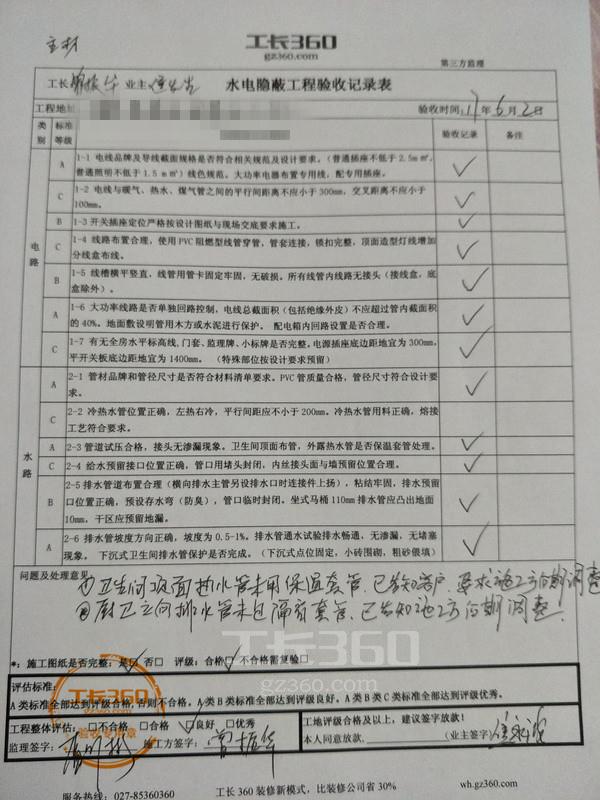 主材
工长360
gz360.com
第三方监理
工长 业主 水电隐蔽工程验收记录表
工程地址 验收时间:17年6月2日
类别 标准等级 验收记录 备注
电路
A 1-1 电线品牌及导线截面规格是否符合相关规及设计要求。(普通插座不低于2.5m㎡,
普通照明不低于1.5 m㎡)线色规范。大功率电器布置专用线,配专用插座。 ✓
C 1-2 电线与暖气、热水、煤气管之间的平行间距离不应小于300mm,交叉距离不应小于
100mm。 ✓
B 1-3 开关插座定位严格按设计图纸与现场交底要求施工。 ✓
C 1-4 线路布置合理,使用PVC阻燃型线管穿管,管套连接,锁扣完整,顶面造型灯线增加
分线盒布线。 ✓
B 1-5 线槽横平竖直,线管用管卡固定牢固,无破损。所有线管内线路无接头(接线盒,底
盒除外)。 ✓
A 1-6 大功率线路是否单独回路控制,电线总截面积(包括绝缘外皮)不应超过管内截面积
的40%。地面敷设明管用木方或水泥进行保护。 配电箱内回路设置是否合理。 ✓
C 1-7 有无全房水平标高线,门套、监理牌、小标牌是否完整。电源插座底边距地宜为300mm,
平开关板底边距地宜为1400mm。 (特殊部位按设计要求预留) ✓
水路
A 2-1 管材品牌和管径尺寸是否符合材料清单要求。PVC管质量合格,管径尺寸符合设计要
求。 ✓
C 2-2 冷热水管位置正确,左热右冷,平行间距应不小于200mm。冷热水管用料正确,熔接
工艺符合要求。
A 2-3 管道试压合格,接头无渗漏现象。卫生间顶面布管,外露热水管是否保温套管处理。 ✓
C 2-4 给水预留接口位置正确,管口用堵头封闭,内丝接头面与墙预留位置合理。 ✓
B 2-5 排水管道布置合理(横向排水主管另设排水口时连接件上扬),粘结牢固,排水预留
口位置正确,预设存水弯(防臭),管口临时封闭。坐式马桶110mm排水管应凸出地面
10mm,干区应预留地漏。 ✓
A 2-6 排水管坡度方向正确,坡度为0.5-1%。排水管通水试验排水畅通,无渗漏,无堵塞
现象。 下沉式卫生间排水管保护是否完成。(下沉式点位固定,小砖围砌,粗砂偎填) ✓
问题及处理意见
①卫生间顶面排水管未用保温套管,已告知客户,要求施工方后期调整
②厨卫立向排水管未包隔音套管,已告知施工方后期调整!
工长360
gz360.com
*:施工图纸是否完整:是☑ 否□ 评级:合格☑ 不合格需复验□
评估标准:
A类标准全部达到评级合格,否则不合格。A类B类标准全部达到评级良好。A类B类C类标准全部达到评级优秀。
工长360
验收专用章
工程整体评估:□不合格 □合格 ☑良好 □优秀
工地评级合格及以上,建议签字放款!
监理签字: 施工方签字:曾振华
本人同意放款。 (业主签字)
服务热线:027-85360360 工长360装修新模式,比装修公司省30% wh.gz360.com